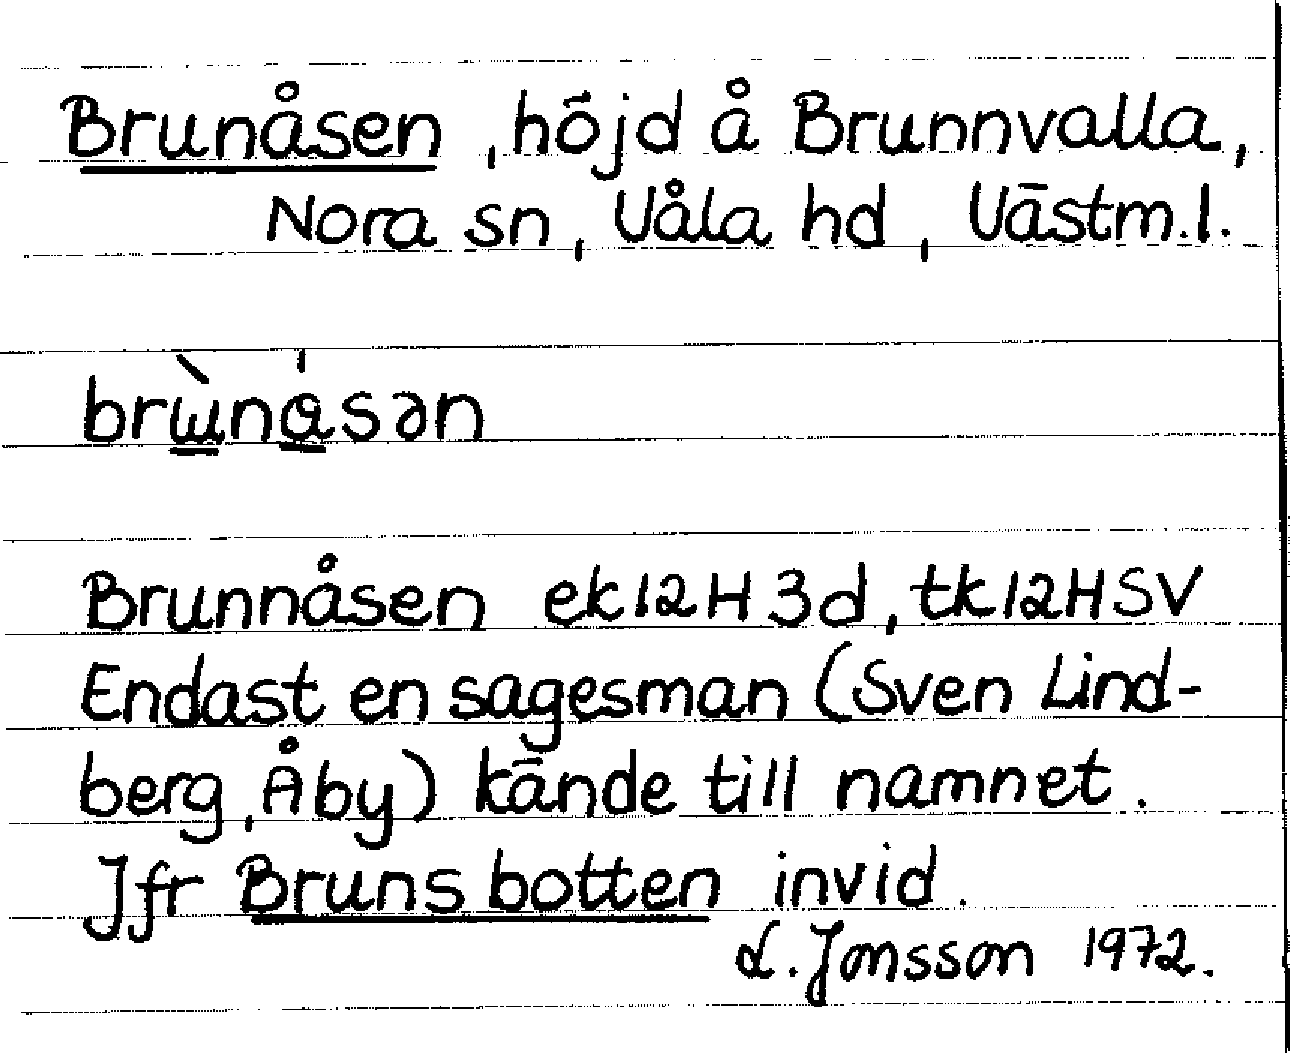 Brunåsen, höjd å Brunnvalla,
Nora sn, Våla hd, Västm.l.
brɯ̀nåsən
Brunnåsen ek12H3d, tk12HSV
Endast en sagesman (Sven Lind-
berg, Åby) kände till namnet.
Jfr Brunsbotten invid.
L. Jonsson 1972.